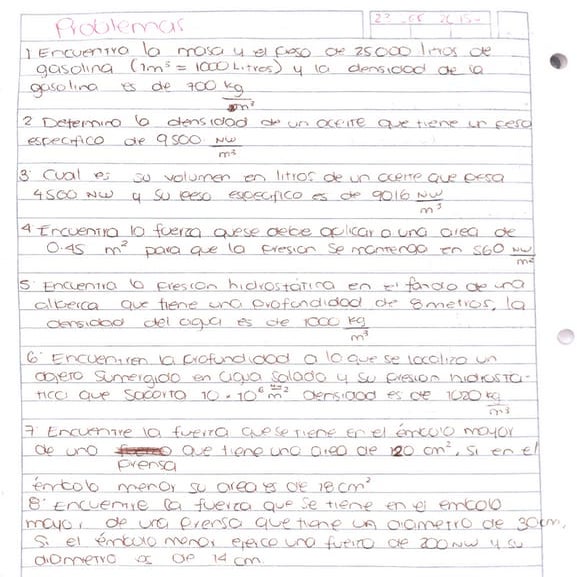 Problemas
1 Encuentra la masa y el peso de 25000 litros de
gasolina (1m³ = 1000 Litros) y la densidad de la
gasolina es de 700 kg/m³
2 Determina la densidad de un aceite que tiene un peso
especifico de 9500 NW/m³
3 Cual es su volumen en litros de un aceite que pesa
4500 NW y su peso especifico es de 9016 NW/m³
4 Encuentra la fuerza que se debe aplicar a una area de
0.45 m² para que la presion se mantenga en 560 NW/m²
5. Encuentra la presion hidrostática en el fondo de una
alberca que tiene una profundidad de 8 metros, la
densidad del agua es de 1000 kg/m³
6. Encuentren la profundidad a la que se localiza un
objeto sumergido en agua salada y su presion hidrosta-
tica que soporta 10 × 10⁶ m² densidad es de 1020 kg/m³
7 Encuentre la fuerza que se tiene en el émbolo mayor
de una prensa que tiene una area de 120 cm², si en el
émbolo menor su area es de 18 cm²
8. Encuentre la fuerza que se tiene en el embolo
mayor de una prensa que tiene un diametro de 30 cm,
Si el émbolo menor ejerce una fuerza de 200 NW y su
diametro es de 14 cm